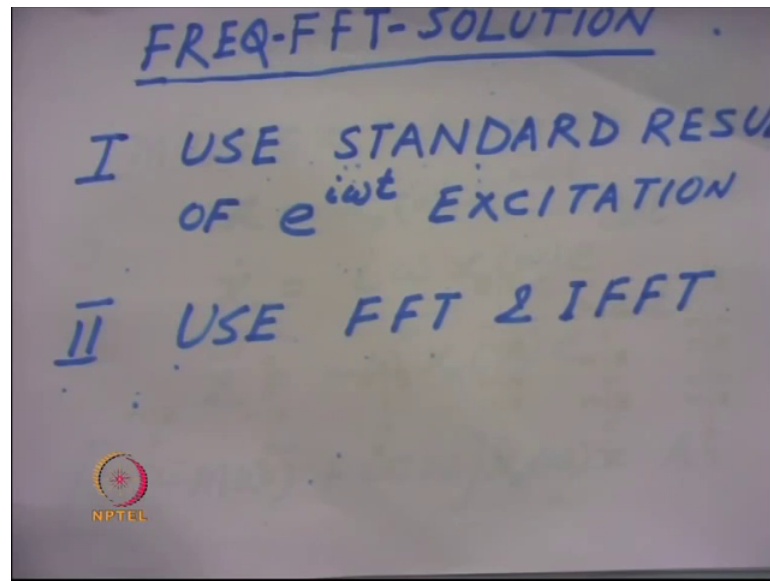 FREQ-FFT-SOLUTION .
I USE STANDARD RESU
OF e^{iωt} EXCITATION
II USE FFT & IFFT
NPTEL